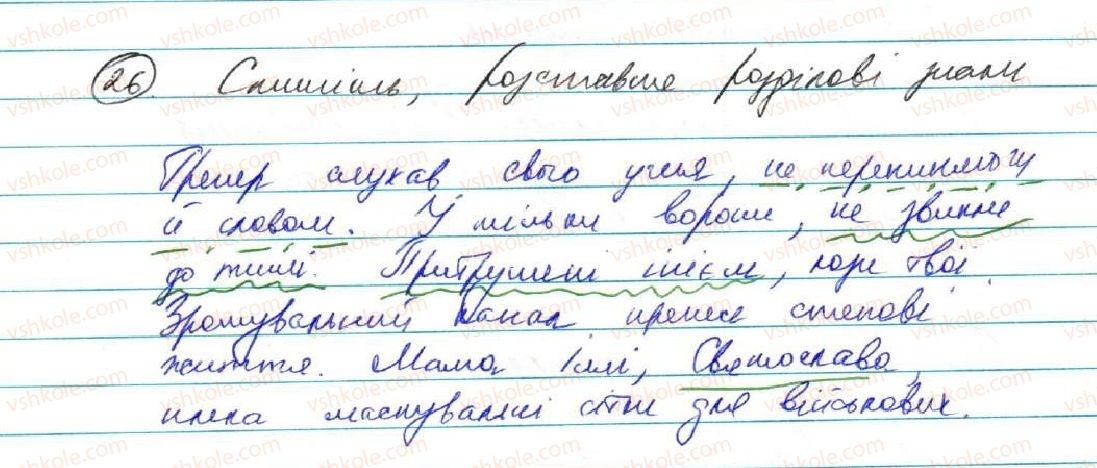 26. Спишіть, розставте розділові знаки
Тренер слухав свого учня, не перекинувшогу
й словом. У тільки вороне, не звикле
до тиші. Притрушені інієм, коси твої.
Зрошувальний канал приніс степові
життя. Мама Іллі, Святослава,
плела маскувальні сітки для військових.